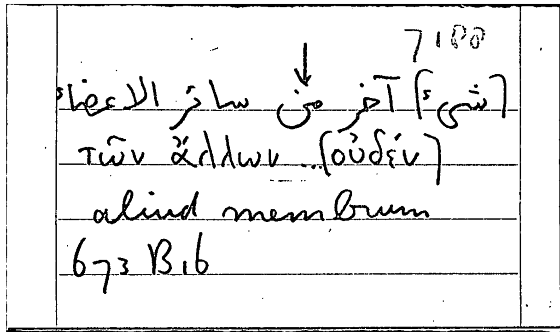 7188
↓
[شيء] آخر من سائر الاعضاء
τῶν ἄλλων ... [οὐδέν]
aliud membrum
673 B16